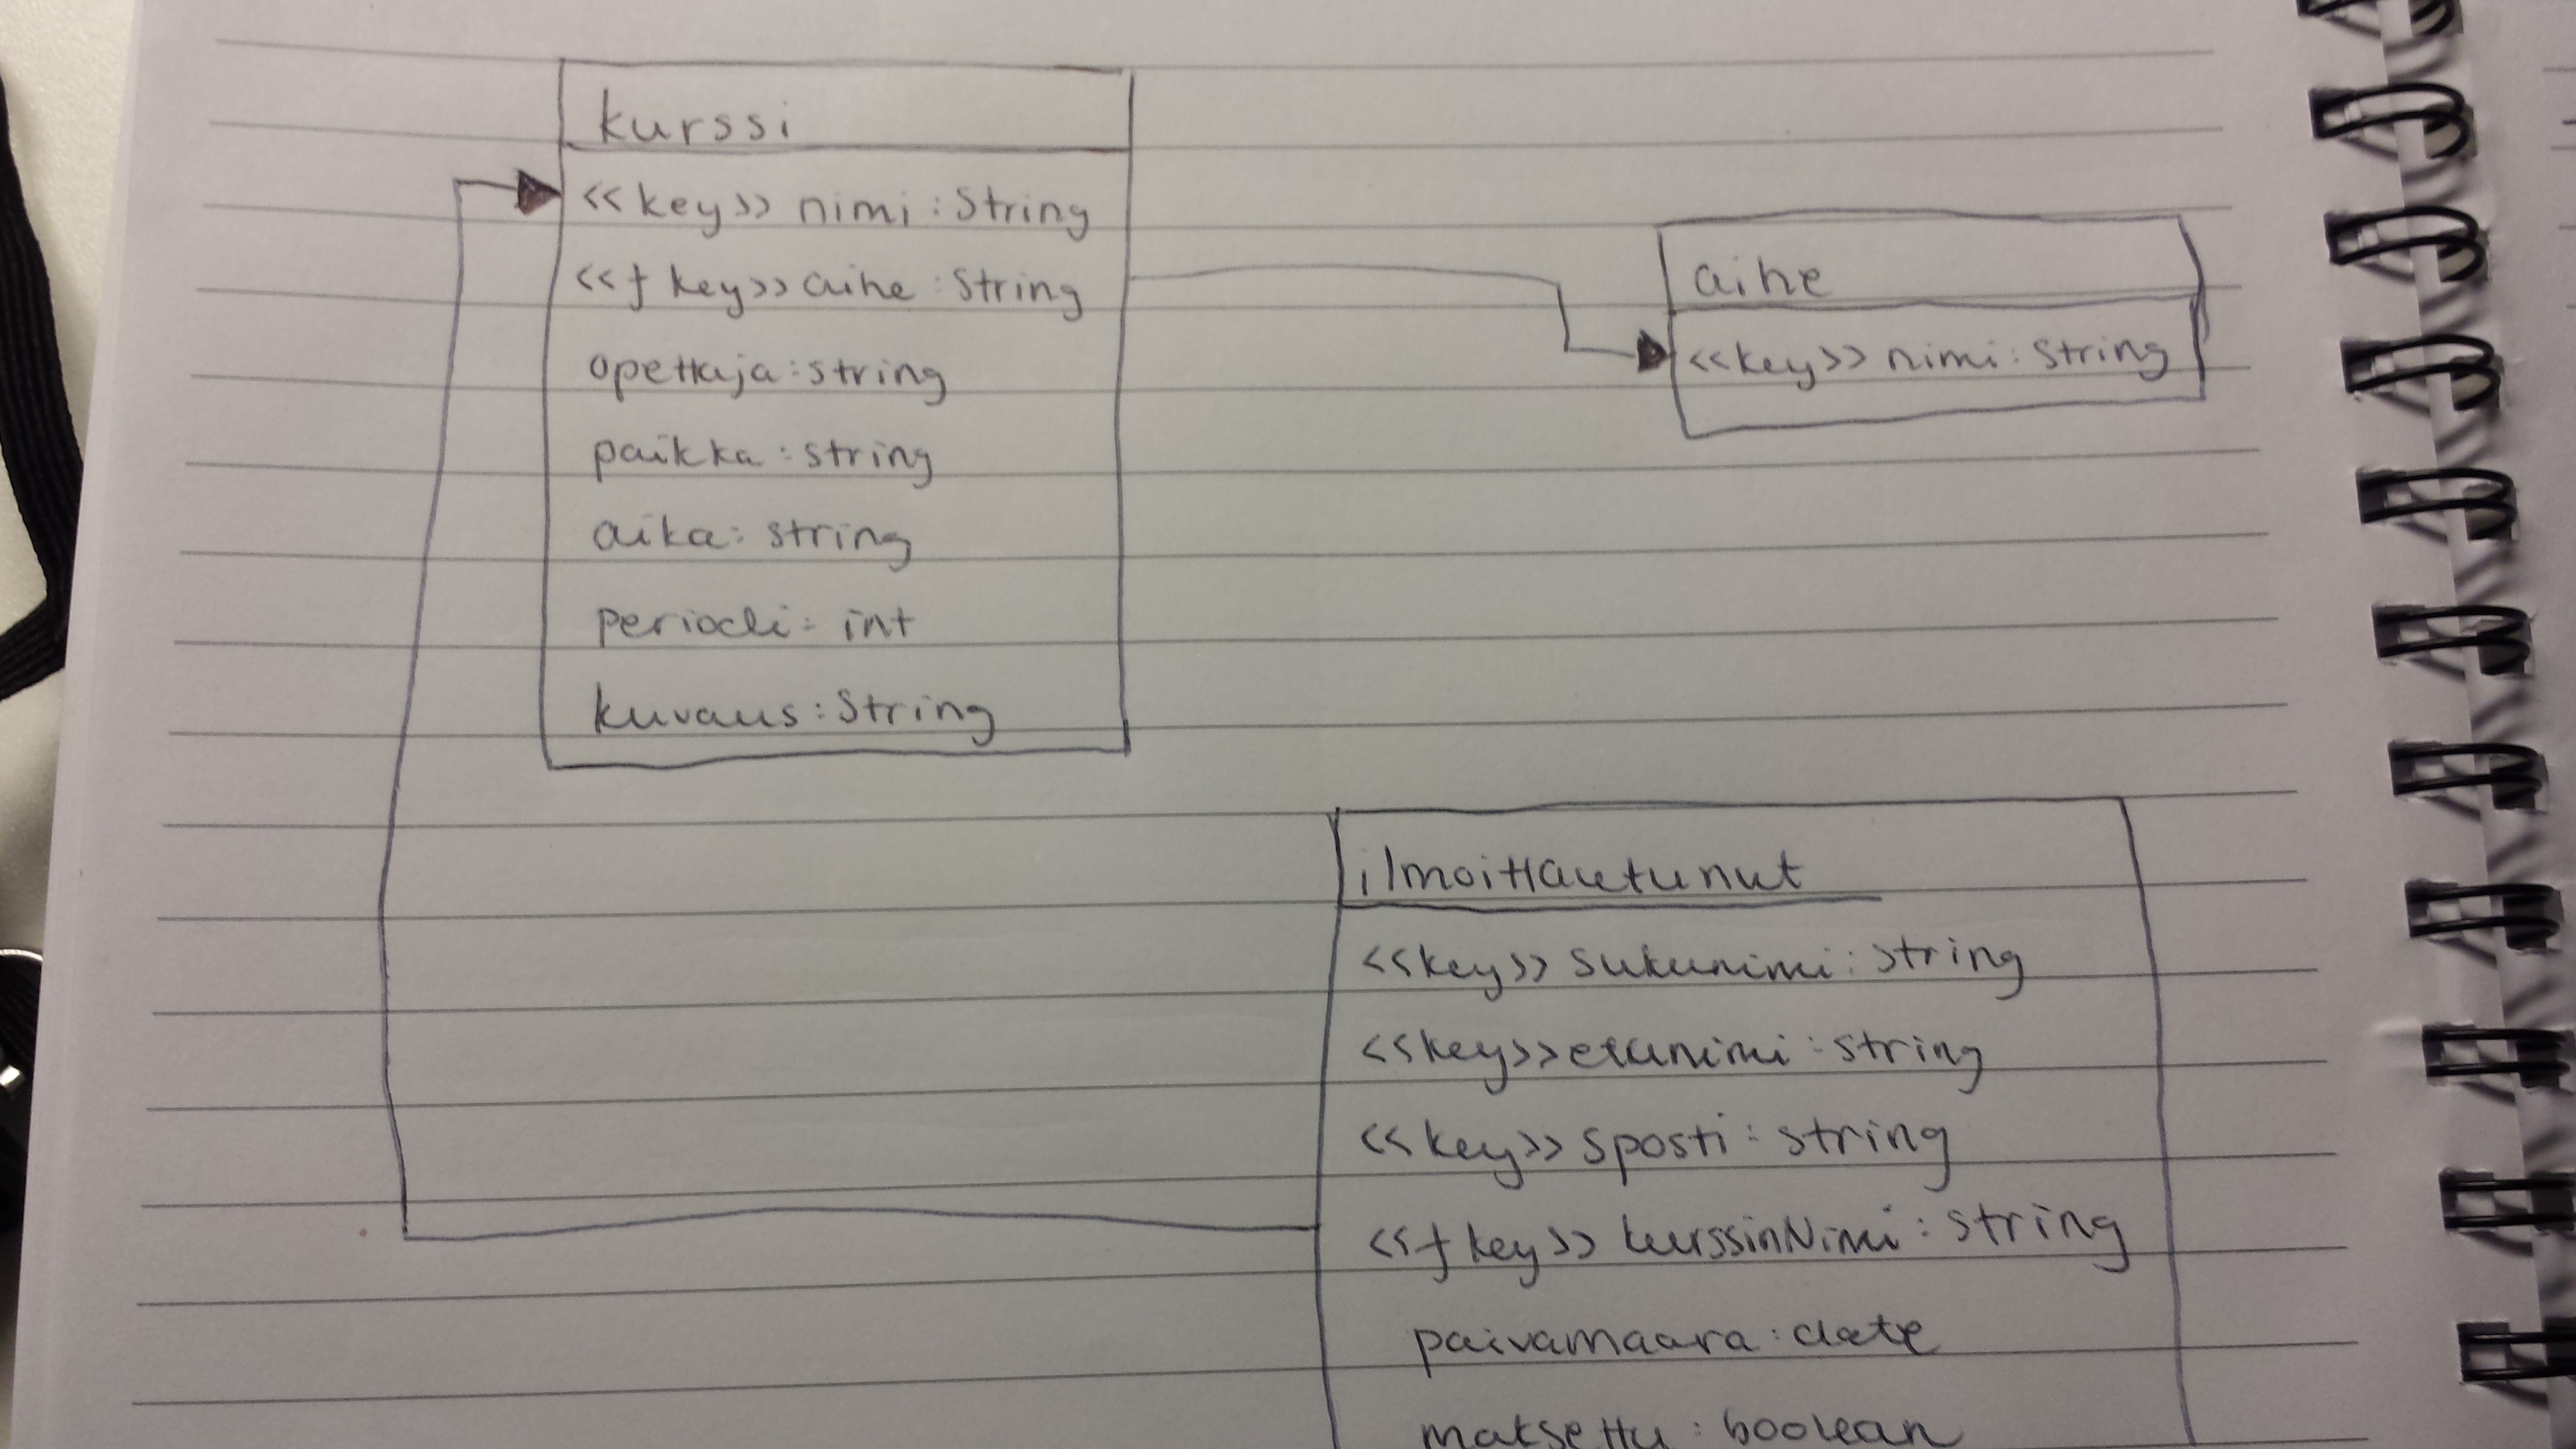 kurssi
<<key>> nimi : String
<<fkey>> aihe : String
opettaja : string
paikka : string
aika : string
periodi : int
kuvaus : String
aihe
<<key>> nimi : String
ilmoittautunut
<<key>> sukunimi : string
<<key>> etunimi : string
<<key>> sposti : string
<<fkey>> kurssinNimi : string
paivamaara : date
maksettu : boolean